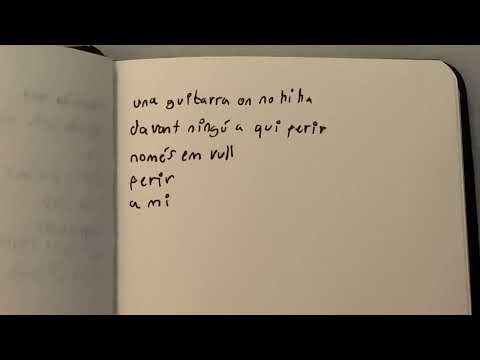 una guitarra on no hi ha
davant ningú a qui ferir
només em vull
ferir
a mi